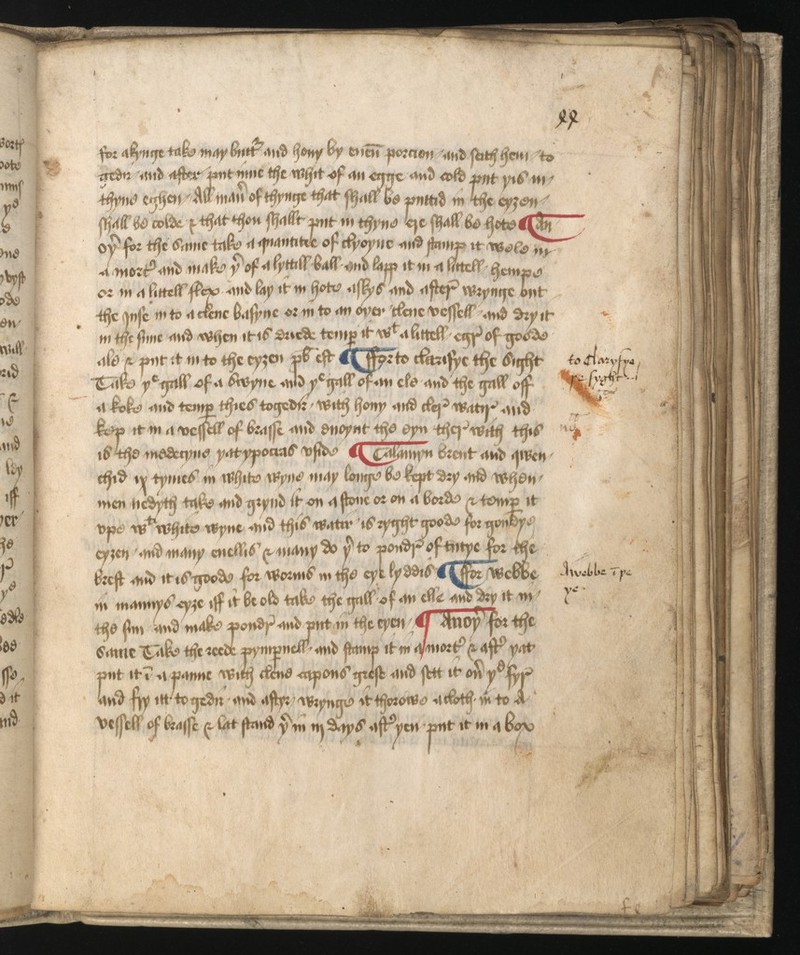 xx
for akynge take may buttr and hony by euen porcion and seith hem to
gedir and after put inne the whit of an egge and cold put yis in
thyne eighen All man of thynge that shall be puttid in the eyzen
shall be colde & that thou shallt put in thyne ere shall be hote ¶ An
oyr for the same take a quantitee of and stamp it wele in
a mortr and make yr of a lyttill ball and lapp it in a littell hempe
or in a littell flex and lay it in hote asshys and after wrynge out
the iuse in to a clene basyne or in to an oyer clene vessell and dry it
in the sune and when it is driede temp it wt a littell egr of goode
ale & put it in to the eyzen pb est ¶ ffor to clarifye the sight
Take ye gall of a swyne and ye gall of an ele and the gall off
a koke and temp thies togedir with hony and cler watir and
kepp it in a vessell of brasse and enoynt the eyn ther with this
is the medecyne yat ypocras vside ¶ Calamyn brent and qwen
chid ix tymes in white wyne may longe be kept dry and when
men nedyth take and grynd it on a stone or on a borde & temp it
vpe wt white wyne and this watir is ryght goode for goundye
eyzen and many enellis & many do yr to poudr of tutye for the
brest and it is goode for worms in the eye lyddis ¶ ffor webbe
in mannys eyze iff it be old take the gall of an elle and dry it in
the sun and make poudr and put in the eyen ¶ Anoyr for the
same Take the reede pympnell and stamp it in a mortr & aftr yat
put it i a panne with clene capons grese and sett it on ye fyr
and fry itt to gedir and aftyr wrynge it thorowe a cloth in to a
vessell of brasse & lat stand yr in iij days aftr yen put it in a box
to claryfye
ye syght
A webbe i ye
ye